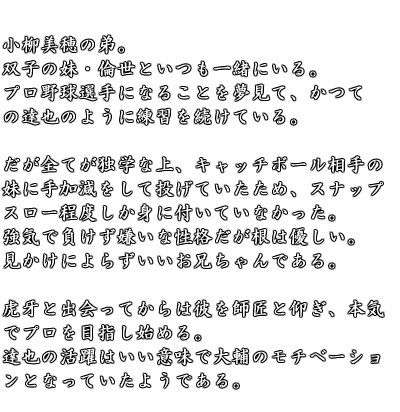 小柳美穂の弟。
双子の妹・倫世といつも一緒にいる。
プロ野球選手になることを夢見て、かつて
の達也のように練習を続けている。
だが全てが独学な上、キャッチボール相手の
妹に手加減をして投げていたため、スナップ
スロー程度しか身に付いていなかった。
強気で負けず嫌いな性格だが根は優しい。
見かけによらずいいお兄ちゃんである。
虎牙と出会ってからは彼を師匠と仰ぎ、本気
でプロを目指し始める。
達也の活躍はいい意味で大輔のモチベーショ
ンとなっていたようである。